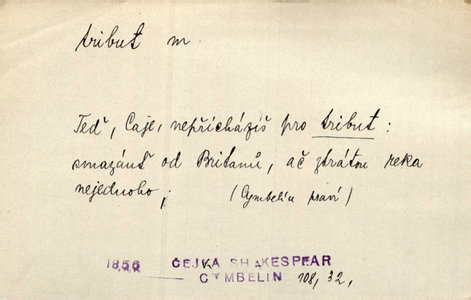 tribut m.
Teď, Caje, nepřicházíš pro tribut:
smazánť od Britanů, ač ztrátou reka
nejednoho; (Cymbelín praví)
1856 ČEJKA SHAKESPEAR
CYMBELIN 108, 32,